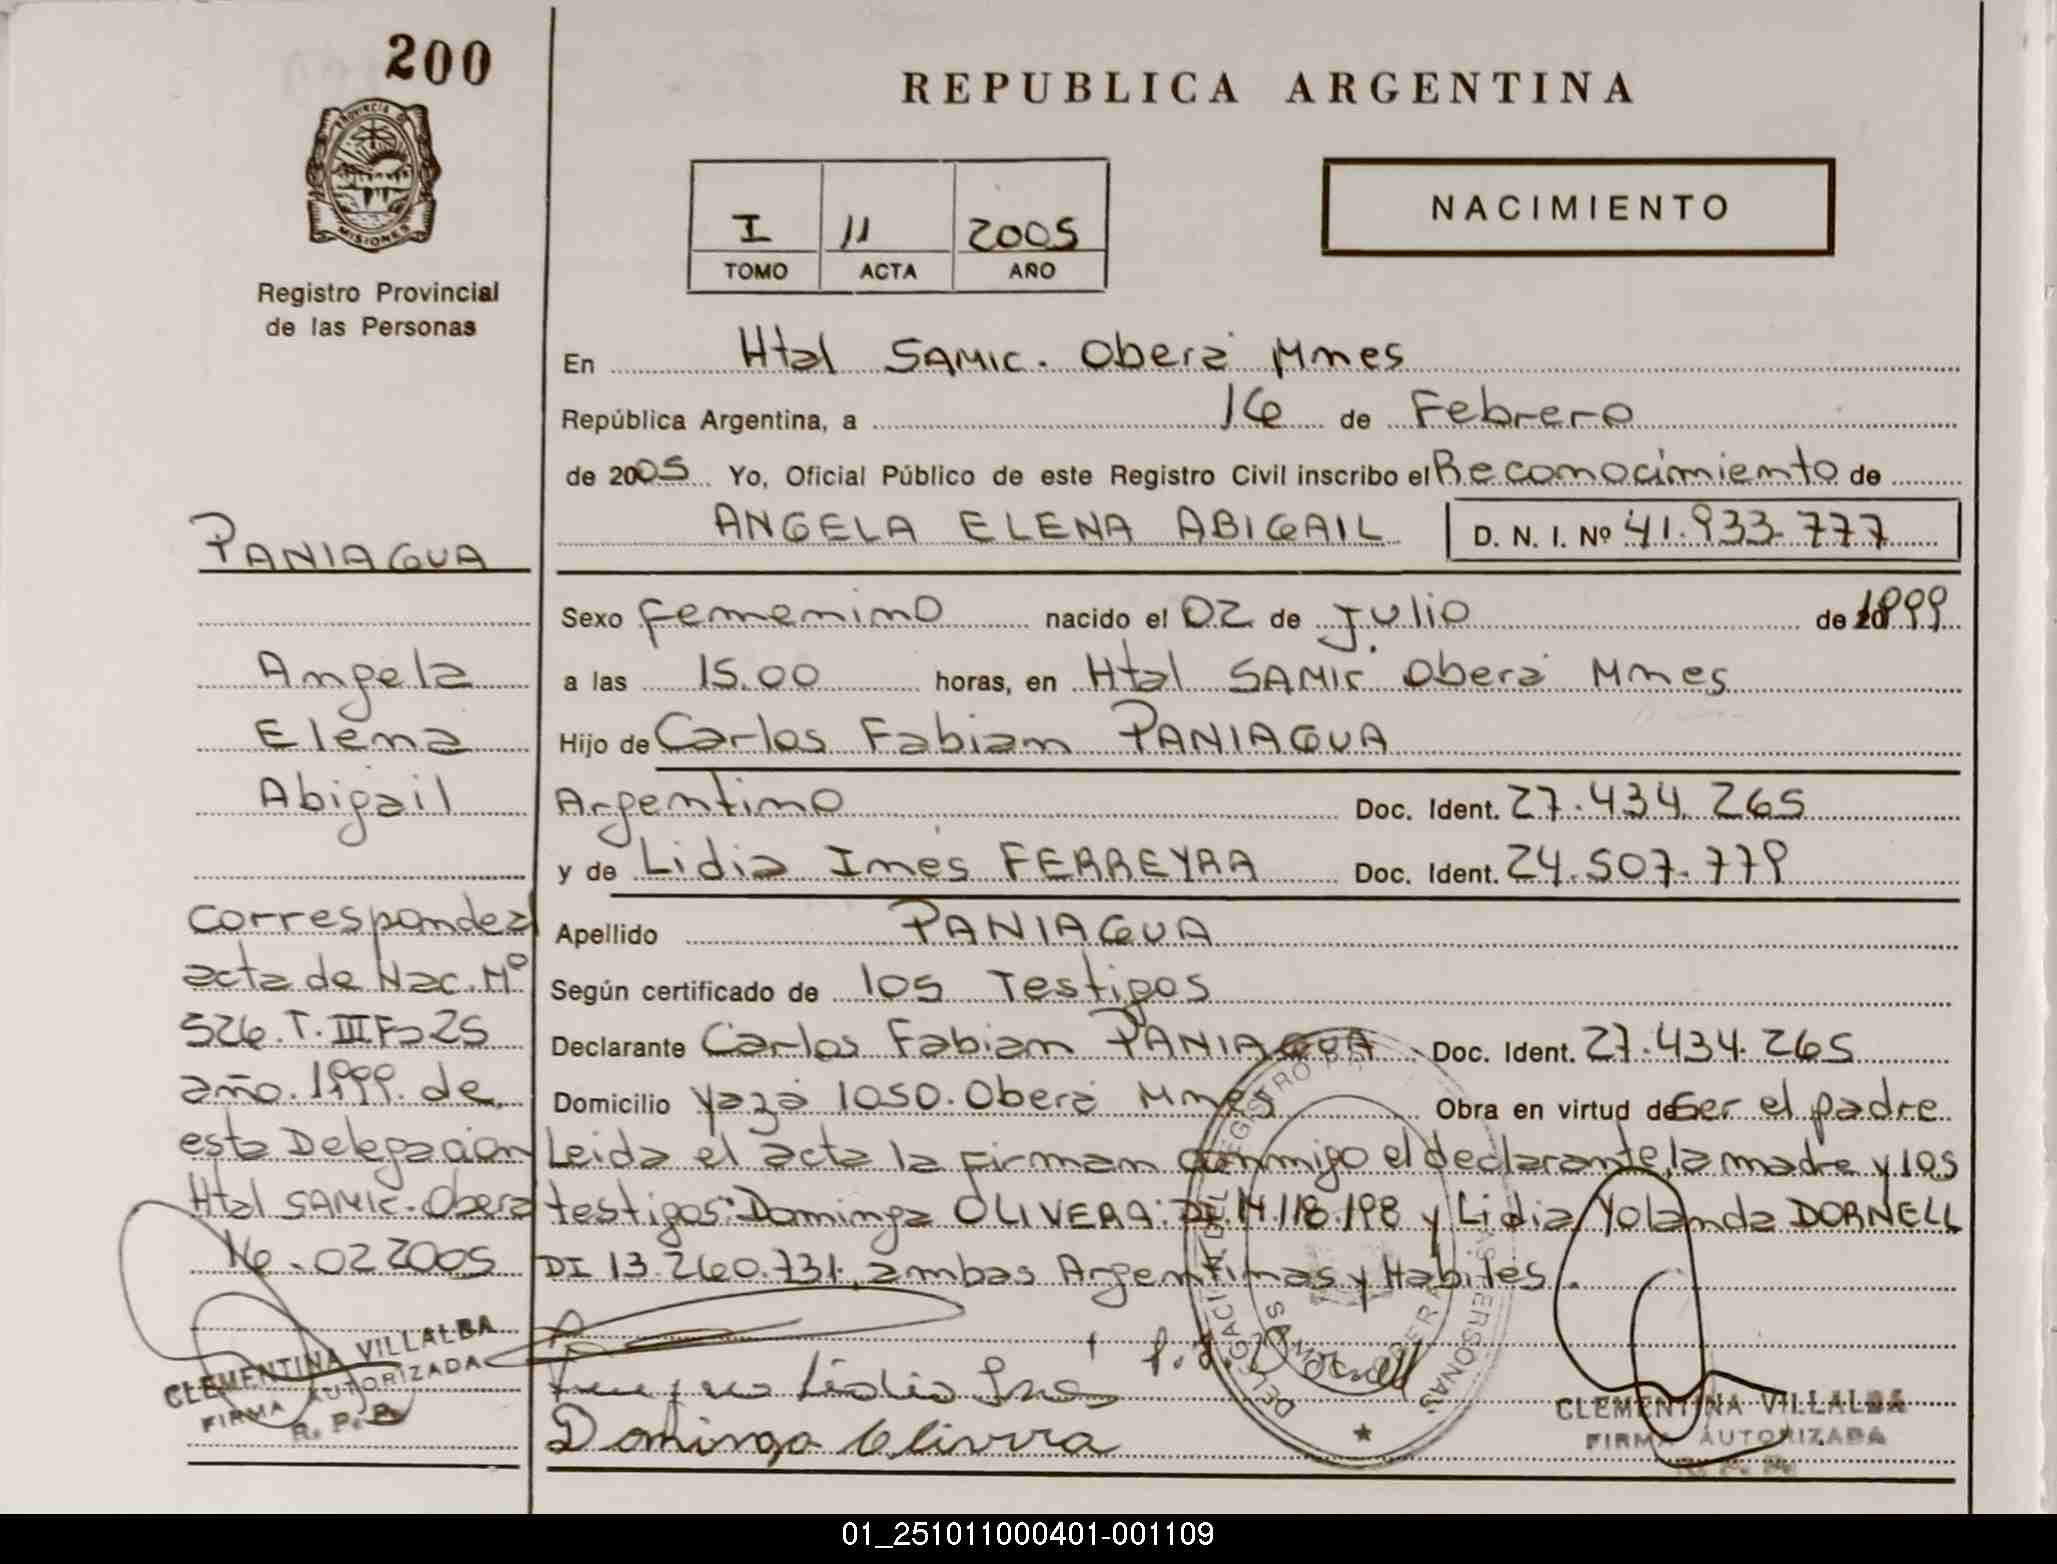 200
PROVINCIA DE
MISIONES
Registro Provincial
de las Personas
PANIAGUA
Angela
Elena
Abigail
Corresponde al
acta de Nac. Nº
526. T. III Fº 25
año. 1999. de
esta Delegación
Htal SAMIC. Oberá
16. 02 2005
CLEMENTINA VILLALBA
FIRMA AUTORIZADA
R. P. P.
REPUBLICA ARGENTINA
NACIMIENTO
I 11 2005
TOMO ACTA AÑO
En Htal SAMIC. Oberá Mnes
República Argentina, a 16 de Febrero
de 2005 Yo, Oficial Público de este Registro Civil inscribo el Reconocimiento de
ANGELA ELENA ABIGAIL D. N. I. Nº 41.933.777
Sexo Femenino nacido el 02 de Julio de 1999
a las 15.00 horas, en Htal SAMIC Oberá Mnes
Hijo de Carlos Fabian PANIAGUA
Argentino Doc. Ident. 27.434.265
y de Lidia Ines FERREYRA Doc. Ident. 24.507.779
Apellido PANIAGUA
Según certificado de los Testigos
Declarante Carlos Fabian PANIAGUA Doc. Ident. 27.434.265
Domicilio Yazá 1050. Oberá Mnes Obra en virtud de Ser el padre
Leida el acta la firman conmigo el declarante, la madre y los
testigos: Dominga OLIVERA. DI. 14.118.198 y Lidia Yolanda DORNELL
DI 13.260.731, ambas Argentinas y Habiles.
Lidia
Dominga Olivera
CLEMENTINA VILLALBA
FIRMA AUTORIZADA
01_251011000401-001109